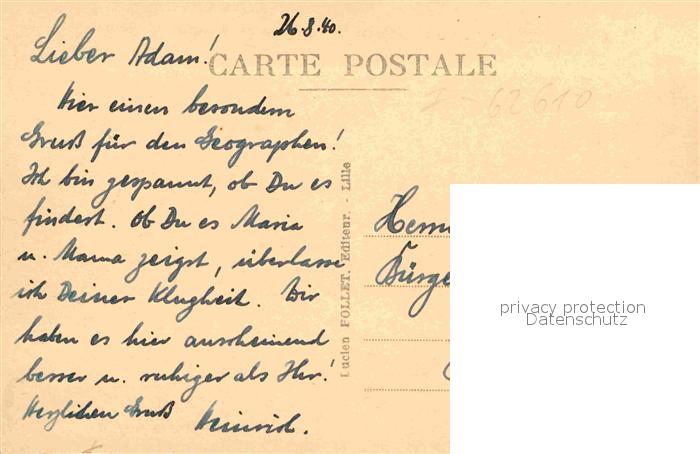 26.8.40.
Lieber Adam!
CARTE POSTALE
Hier einen besondern
Gruß für den Geographen!
Ich bin gespannt, ob Du es
findest. Ob Du es Maria
u. Mama zeigst, überlasse
ich Deiner Klugheit. Wir
haben es hier anscheinend
besser u. ruhiger als Ihr!
Herzlichen Gruß Heinrich.
Lucien POLLET, Editeur. - Lille
I - 62610
Herrn
Bürge
privacy protection
Datenschutz